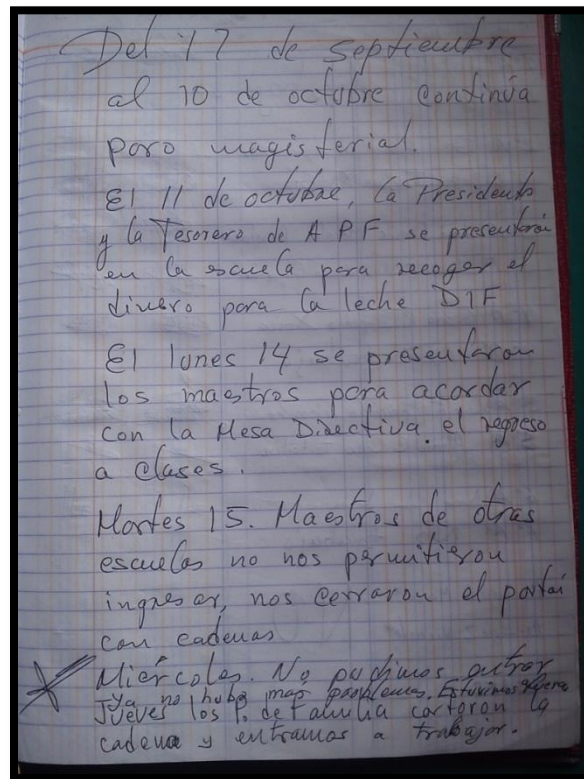 Del 17 de septiembre
al 10 de octubre continúa
paro magisterial.
El 11 de octubre, la Presidenta
y la Tesorero de A P F se presentarón
en la escuela para recoger el
dinero para la leche DIF
El lunes 14 se presentaron
los maestros para acordar
con la Mesa Directiva. el regreso
a clases.
Martes 15. Maestros de otras
escuelas no nos permitieron
ingresar, nos cerraron el
con cadenas
Miércoles. No pudimos entrar
ya no hubo mas problemas. Estuvimos afuera
Jueves los P. de familia cortaron la
cadena y entramos a trabajar.